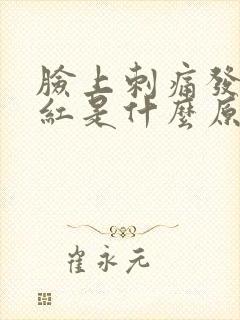 臉上刺痛發
紅是什麼原
崔永元